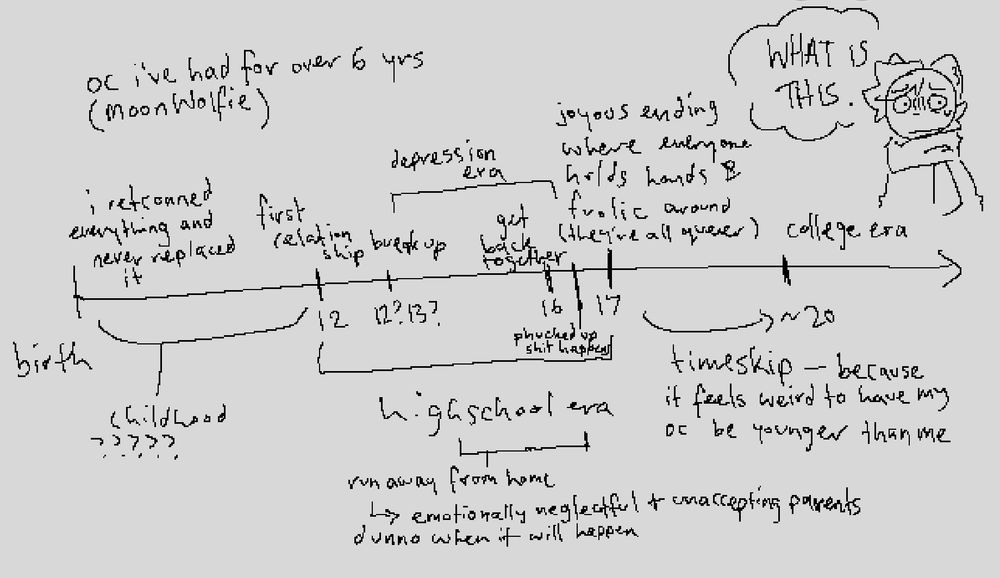 oc i've had for over 6 yrs
(MoonWolfie)
WHAT IS
THIS.
i retconned
everything and
never replaced
it
first
relation
ship
breakup
depression
era
get
back
together
joyous ending
where everyone
holds hands &
frolic around
(they're all queer)
college era
birth
12
12?13?
16
17
~20
phucked up
shit happens
childhood
?????
highschool era
timeskip — because
it feels weird to have my
oc be younger than me
run away from home
↳ emotionally neglectful + unaccepting parents
dunno when it will happen